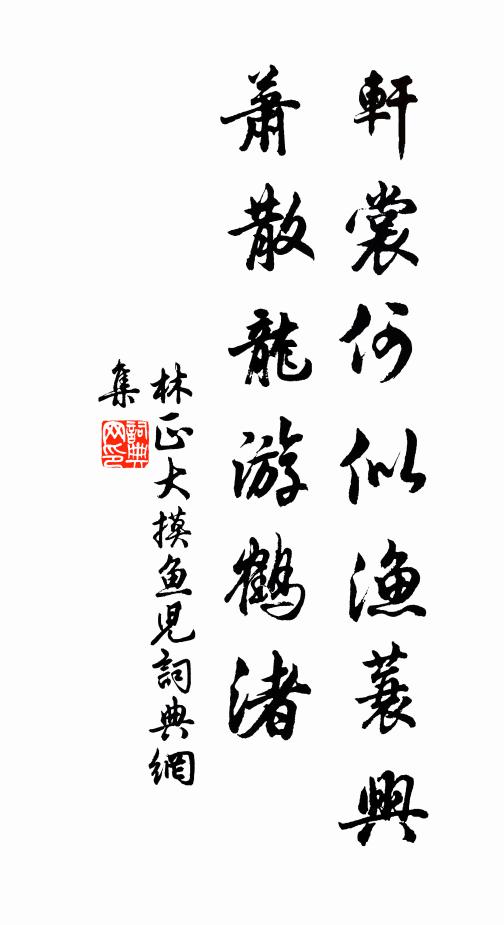 軒裳何似漁蓑興
蕭散龍游鶴渚
林正大摸魚兒詞典網
集
詞典
网印